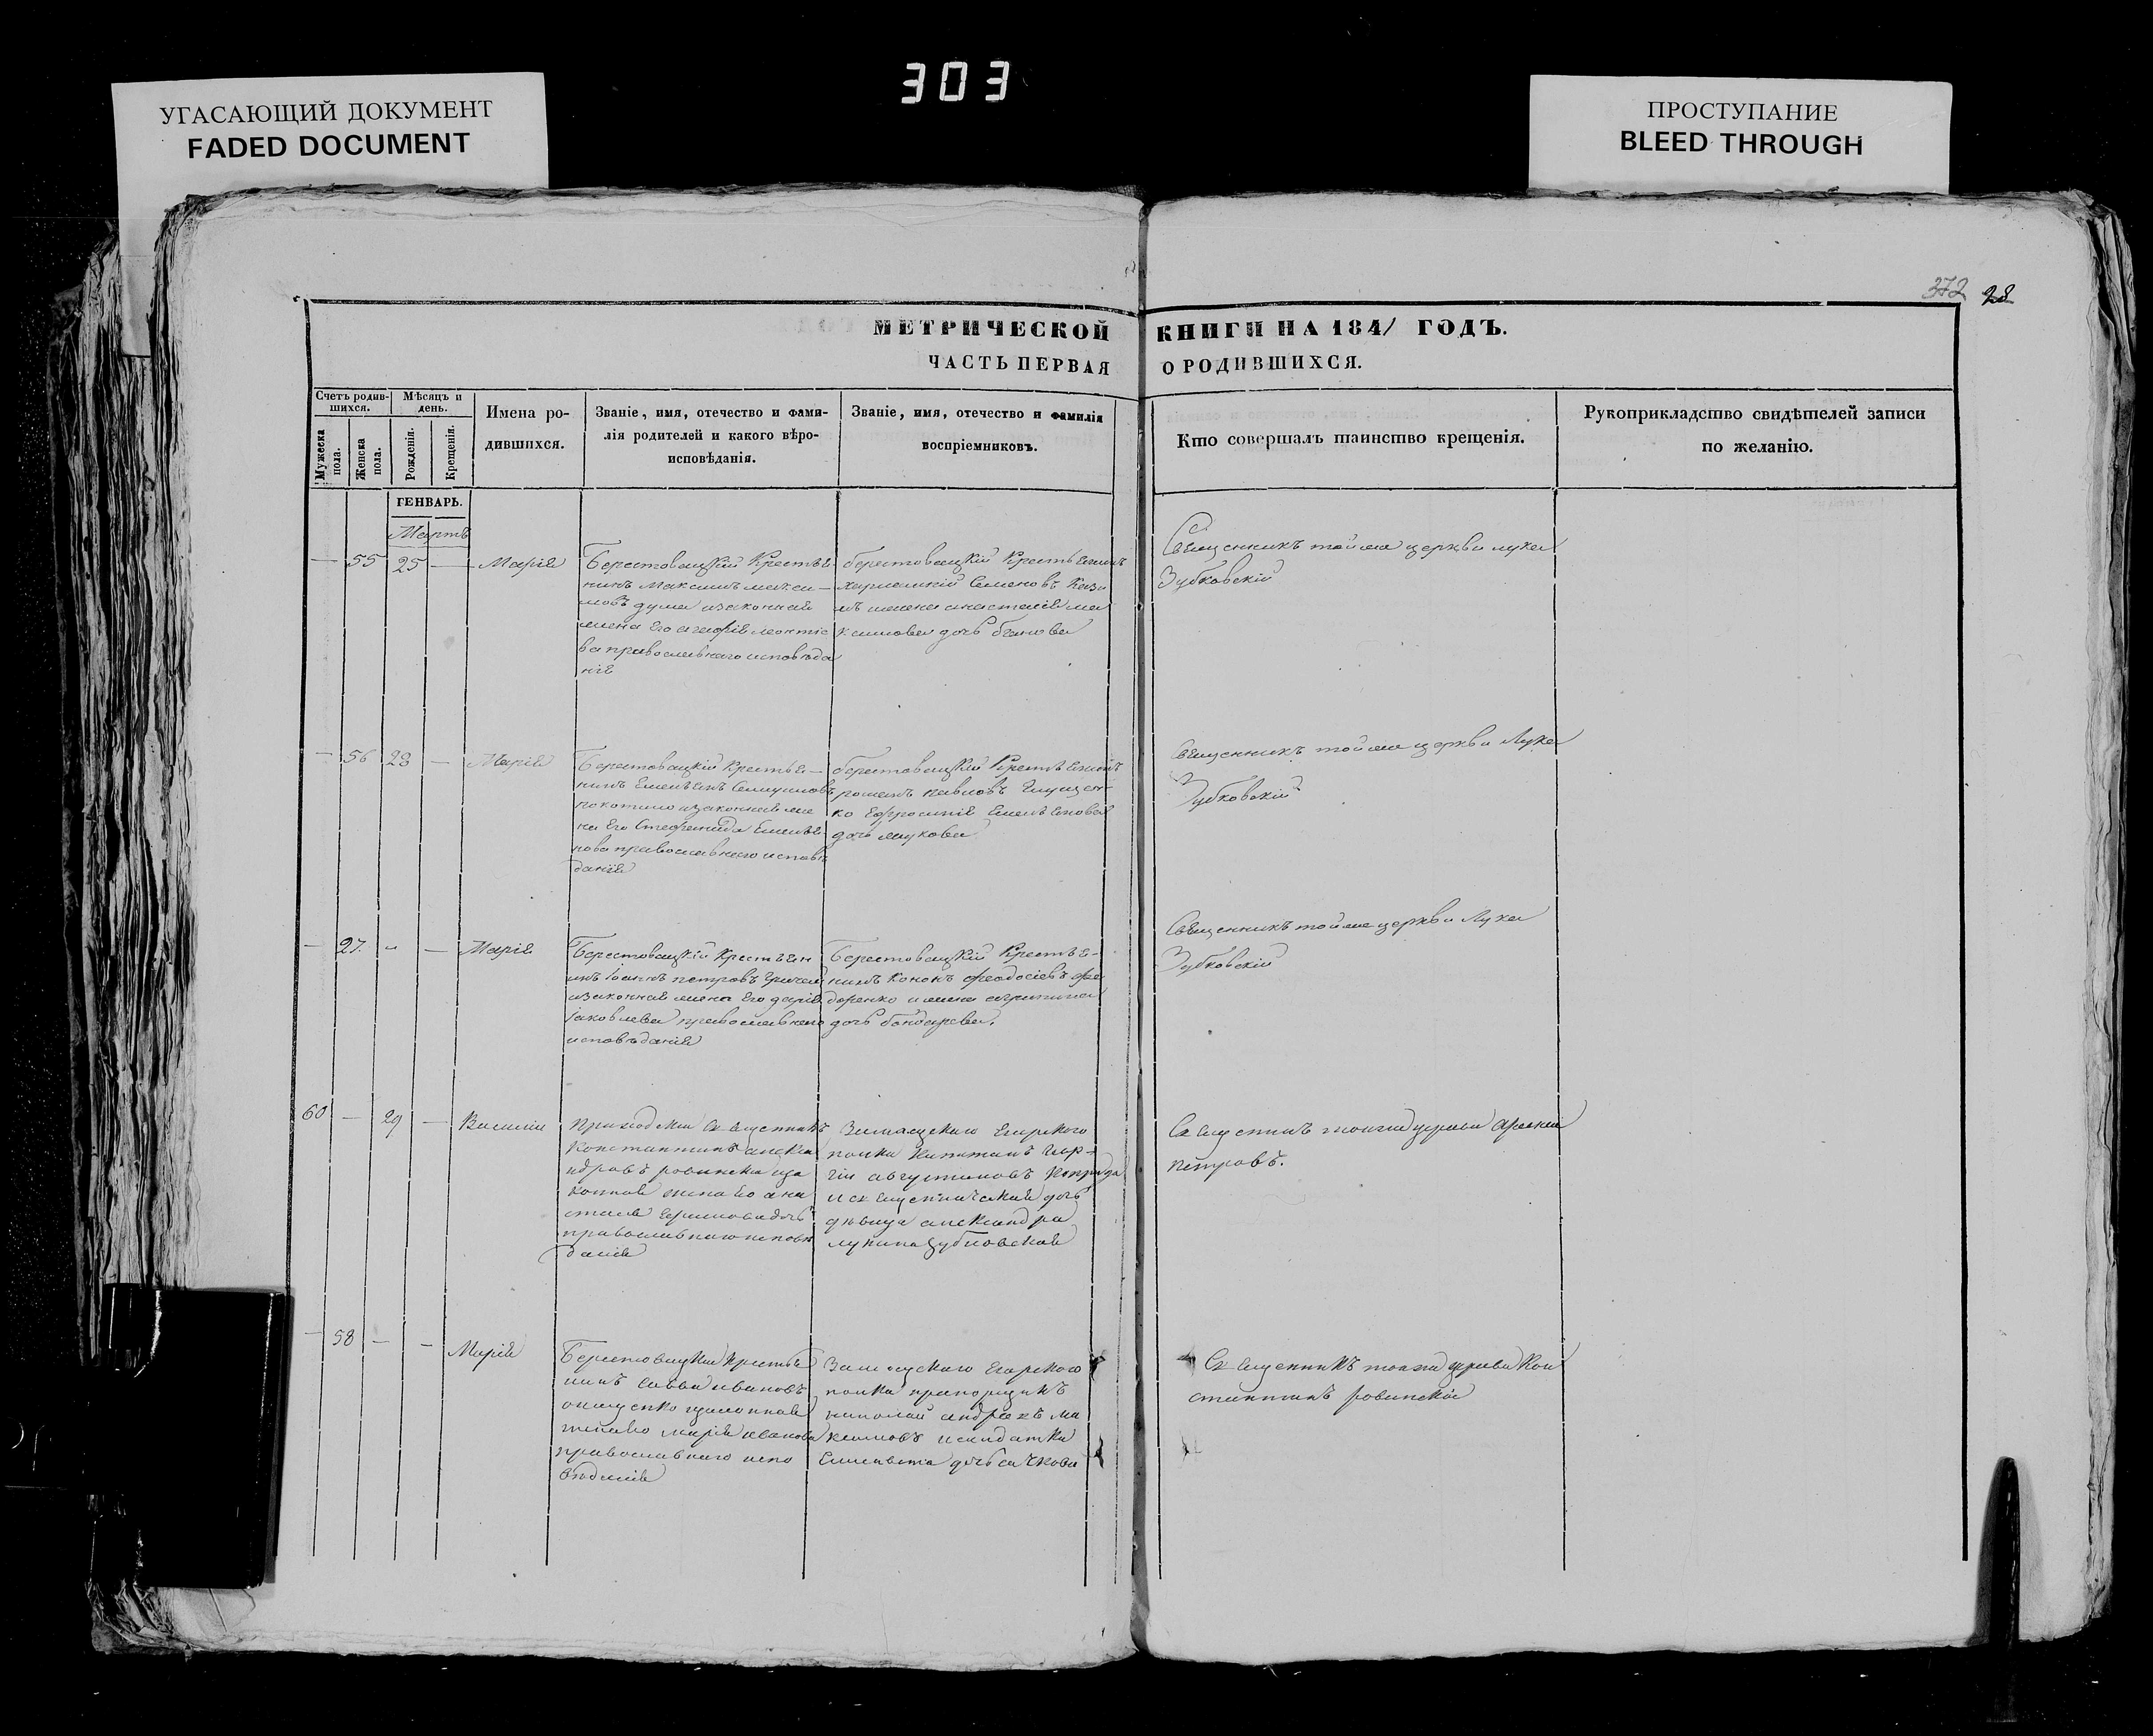 303
УГАСАЮЩИЙ ДОКУМЕНТ
FADED DOCUMENT
ПРОСТУПАНИЕ
BLEED THROUGH
372 28
МЕТРИЧЕСКОЙ КНИГИ НА 1841 ГОДЪ.
ЧАСТЬ ПЕРВАЯ О РОДИВШИХСЯ.
Счетъ родив-
шихся.
Мужеска
пола.
Женска
пола.
Мѣсяцъ и
день.
Рожденія.
Крещенія.
Имена ро-
дившихся.
Званіе, имя, отечество и фами-
лія родителей и какого вѣро-
исповѣданія.
Званіе, имя, отечество и фамилія
воспріемниковъ.
Кто совершалъ таинство крещенія.
Рукоприкладство свидѣтелей записи
по желанію.
ГЕНВАРЬ.
Мартъ
— 55 25 — Марія
Берестовацкій Крестья-
нинъ Максимъ макси-
мовъ дума изаконная
жена Его леонтіе
ва православнаго исповѣда
нія
берестовацкій Крестьянинъ
Семеновъ
жена анастасія ма
ксимова дочь
Священникъ тойже церкви лука
Зубковскій
— 56 28 — Марія
Берестовацкій Крестья-
нинъ Емельянъ
изаконная же
на Его Стефанида Емелья-
нова православнаго исповѣ
данія
берестовацкій Крестьянинъ
романъ павловъ
ко Ефросинія Емельянова
дочь
Священникъ тойже церкви Лука
Зубковскій
— 27. — Марія
Берестовацкій Крестьян
инъ Іоанъ петровъ
изаконная жена Его дарія
Іаковлева православнаго
исповѣданія
Берестовацкій Крестья-
нинъ Кононъ феодосіевъ фе
доренко и жена агрипина
дочь бондарева.
Священникъ тойже церкви Лука
Зубковскій
60 — 29 — Василій
Приходскій Священникъ
Константинъ алекса
ндровъ ровинскій иза
конная жена Его ана
стасія Ефимова дочь
православнаго исповѣ
данія
Замосцкаго Егерскаго
полка Капитанъ Геор-
гій августиновъ
и священическая дочь
дѣвица александра
лукина Зубковская
Священникъ тоижъ церкви
петровъ.
— 58 — — Марія
Берестовацкій крестья
нинъ савва ивановъ
онищенко изаконная
жена Его марія иванова
православнаго испо
вѣданія
Замосцкаго Егерскаго
полка прапорщикъ
николай андреевъ ма
ксимовъ и солдатка
Елисавета дочь
Священникъ тоижъ церкви Кон
стантинъ ровинскій